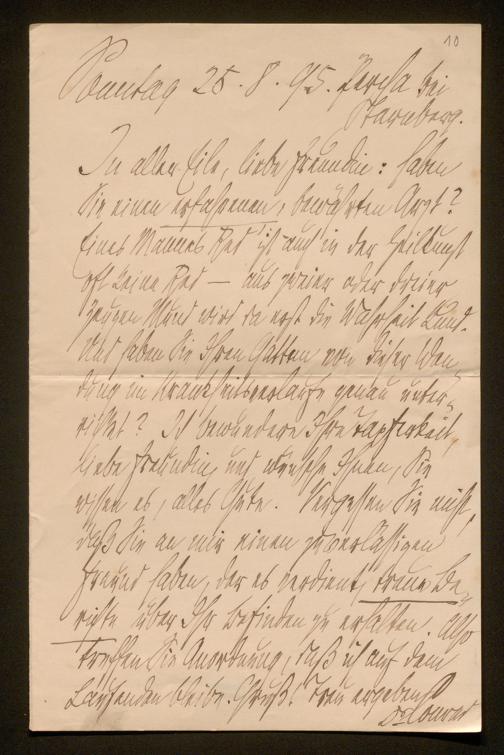 10
Sonntag 25. 8. 95. Percha bei
Starnberg.
In aller Eile, liebe Freundin: haben
Sie einen erfahrenen, bewährten Arzt?
Eines Mannes Red' ist auch in der Heilkunst
oft keine Red — aus zweier oder dreier
Zeugen Mund wird da erst die Wahrheit kund.
Und haben Sie Ihren Gatten von dieser Wen-
dung im Krankheitsverlaufe genau unter-
richtet? Ich bewundere Ihre Tapferkeit,
liebe Freundin, und wünsche Ihnen, Sie
wissen es, alles Gute. Vergessen Sie nicht,
daß Sie an mir einen zuverlässigen
Freund haben, der es verdient, treue Be-
richte über Ihr Befinden zu erhalten. Also
treffen Sie Anordnung, daß ich auf dem
Laufenden bleibe. Gruß! Treu ergebenst
Dr Conrad